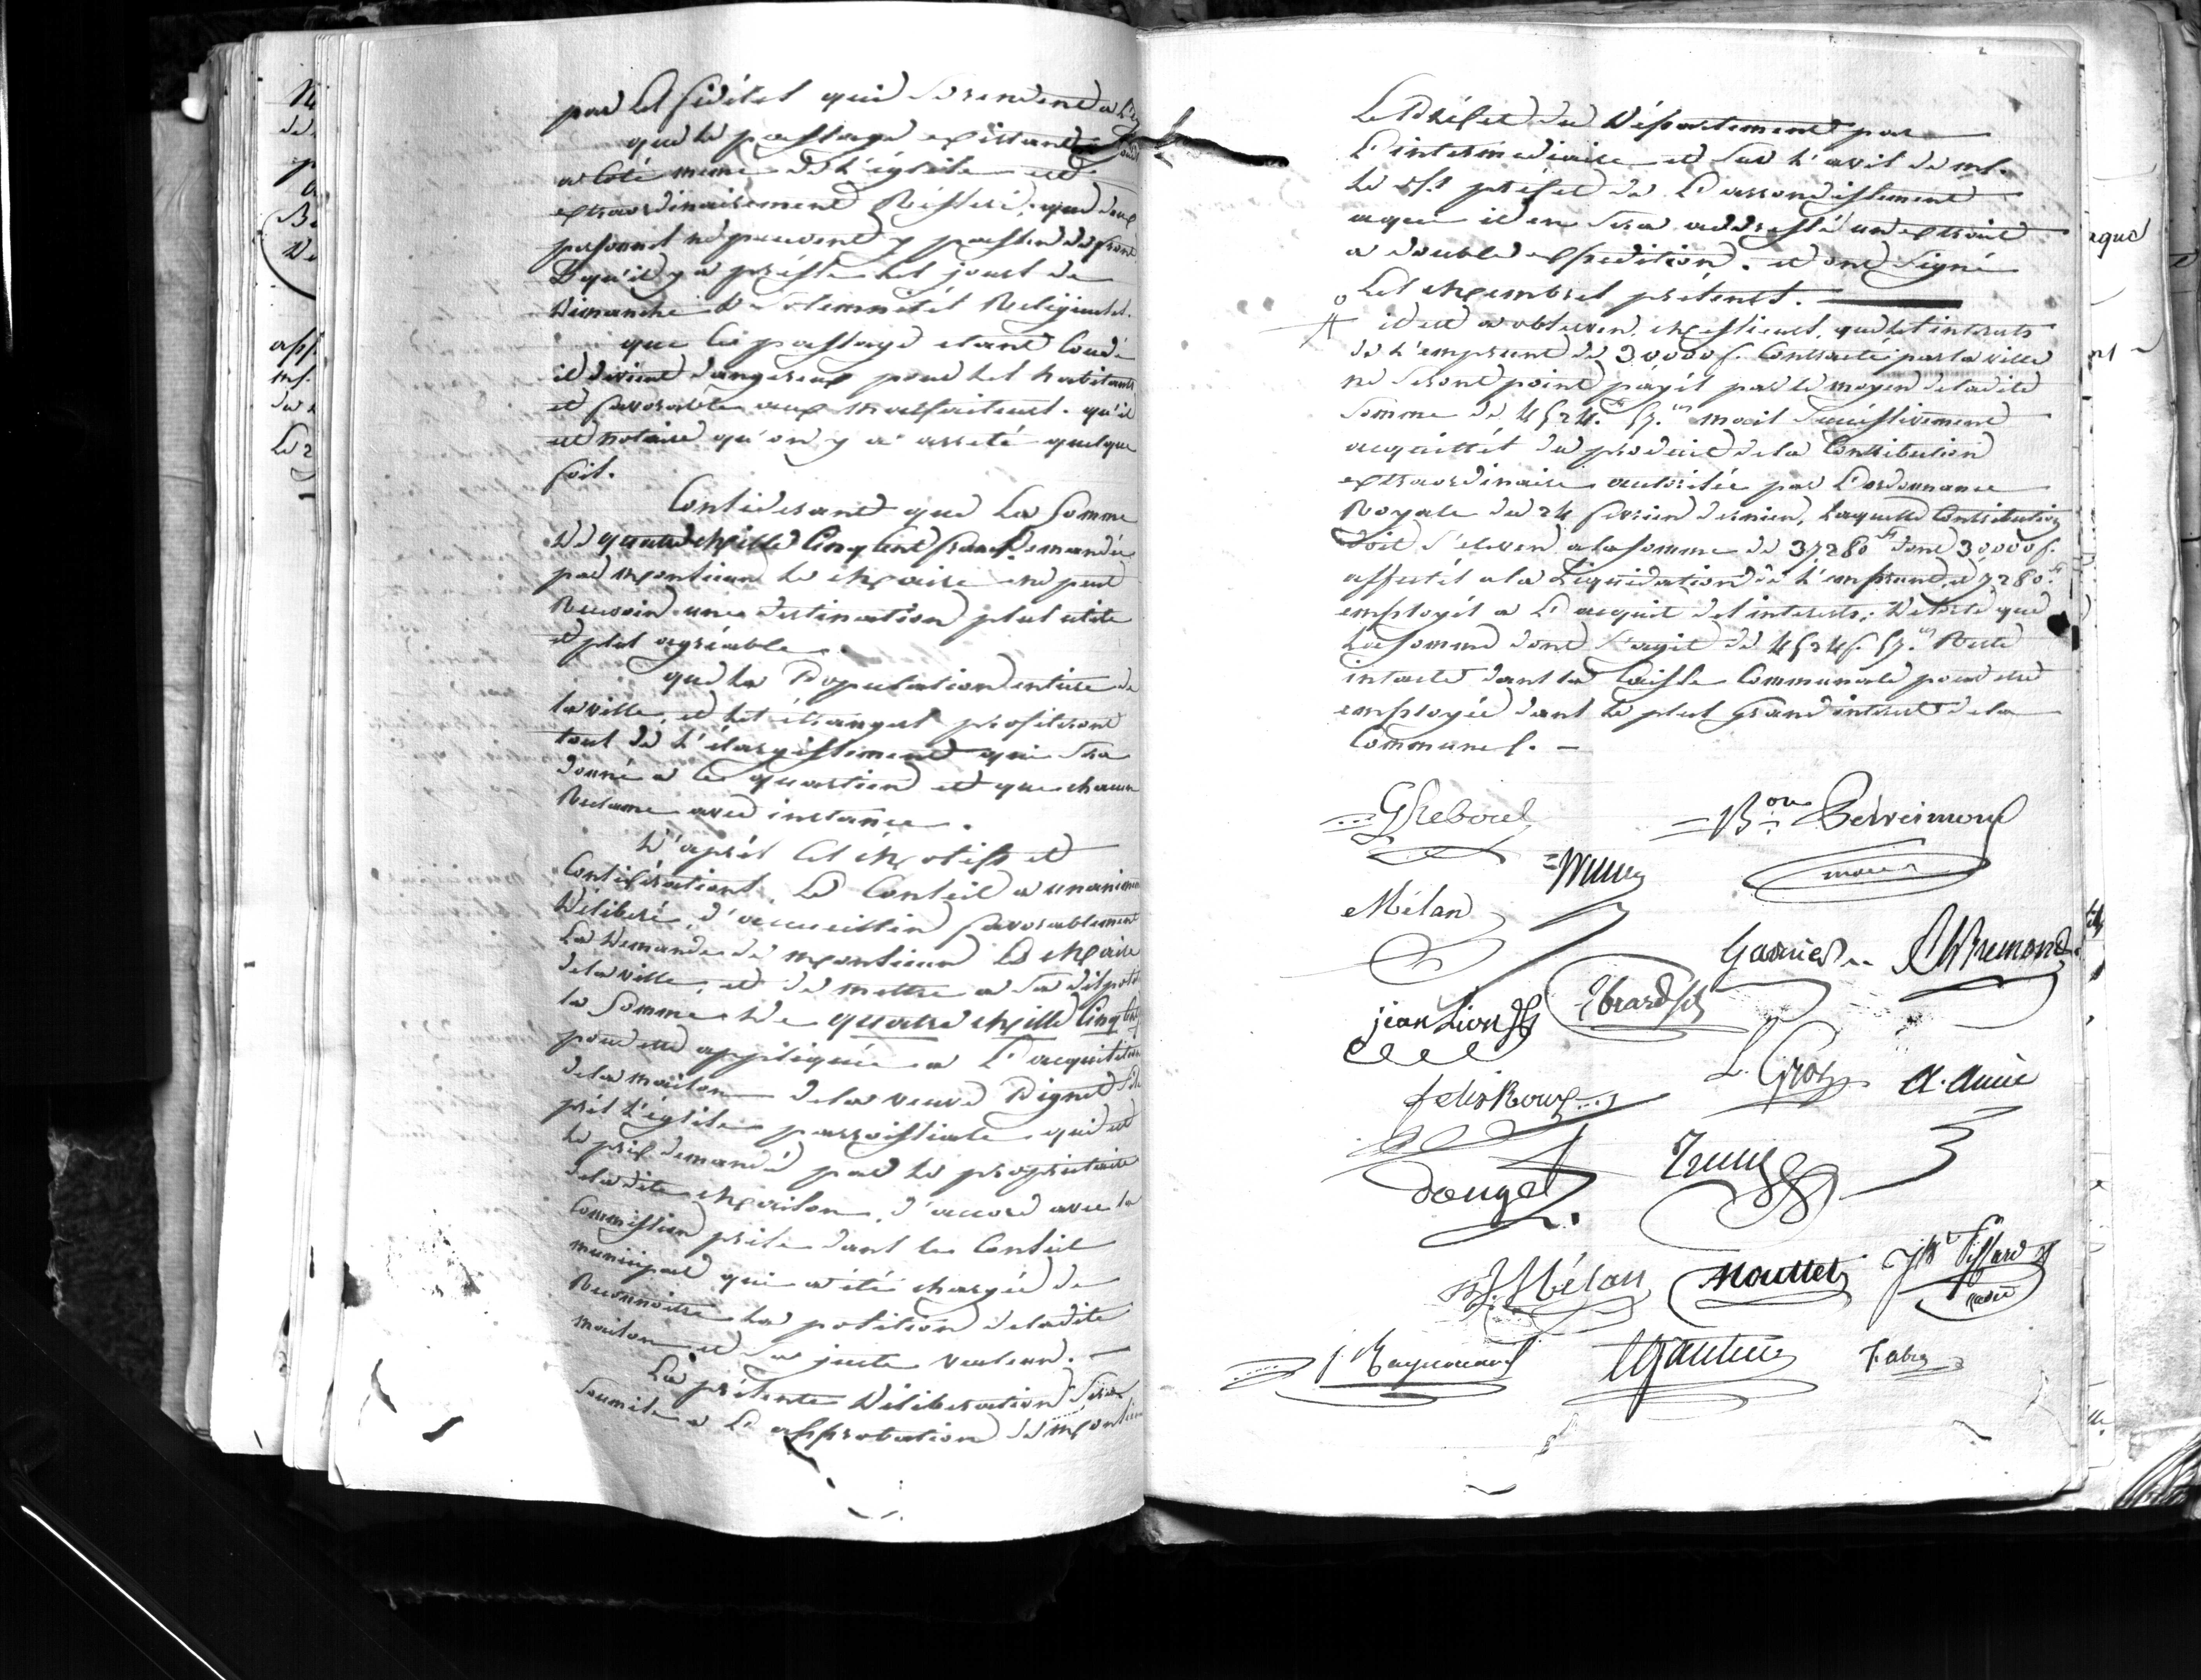 par les fidèles qui se rendent a
que le passage existant
a coté meme de l'église est
extraordinairement Resserré, que deux
personnes ne peuvent y passer de front
qu'il y a presse les jours de
Dimanche & solemnités Religieuses.
que ce passage etant coudé
il devient dangereux pour les habitants
et favorable aux malfaiteurs. qu'il
est notoire qu'on y a arreté quelque
fois.
Considerant que la somme
de quatre Mille Cinq Cent francs demandée
par Monsieur le Maire ne peut
Recevoir une destination plus utile
et plus agréable.
que la Population entiere de
la ville, et les étrangers profiteront
tous de l'élargissement qui sera
donné a ce quartier et que chacun
Reclame avec instance.
D'après ces Motifs et
Considérations, Le Conseil a unanimem
Délibéré, d'accueillir favorablement
La Demande de Monsieur Le Maire
de la ville, et de mettre a sa disposit
la somme De quatre Mille Cinq Cent
pour etre appliquée a L'acquisition
de la maison de la veuve Pignet
près l'église parroissiale qui est
le prix demandé par le propriétaire
de la dite Maison, d'accord avec la
Commission prise dans le Conseil
municipal qui a été chargée de
Reconnoitre la position de la dite
maison et sa juste valeur. —
La présente Délibération sera
soumise a L'approbation de Monsieur
Le Préfet du Département par
L'intermediaire et sur l'avis de Mr.
le ss. préfet de L'arrondissement
aque il en sera addressé un extrait
a double expedition. et ont signé
Les Membres présents. —
il est a observer, Messieurs, que les interets
de l'emprunt de 30000 f. Contracté par la ville
ne seront point payés par le moyen de la dite
somme de 4524. fr 57. cs mais successivement
acquittés du produit de la Contribution
extraordinaire autorisée par L'ordonnance
Royale du 24 fevrier dernier, Laquelle Contribution
doit s'elever a la somme de 37280 fr dont 30000 f.
affectés a la Liquidation de l'emprunt et 7280. fr
employés a L'acquit des interets; De sorte que
La somme dont s'agit de 4524 f. 57. cs Reste
intacte dans la Caisse Communale pour etre
employée dans le plus grand interest de la
Commune. —
G Reboul
Bon
maire
Mélan
Garnier
jean Lion
Ebrard fils
felix Roux
L. Gros
a. aune
douge
Mélan
Mouttet
Gautier
fabre